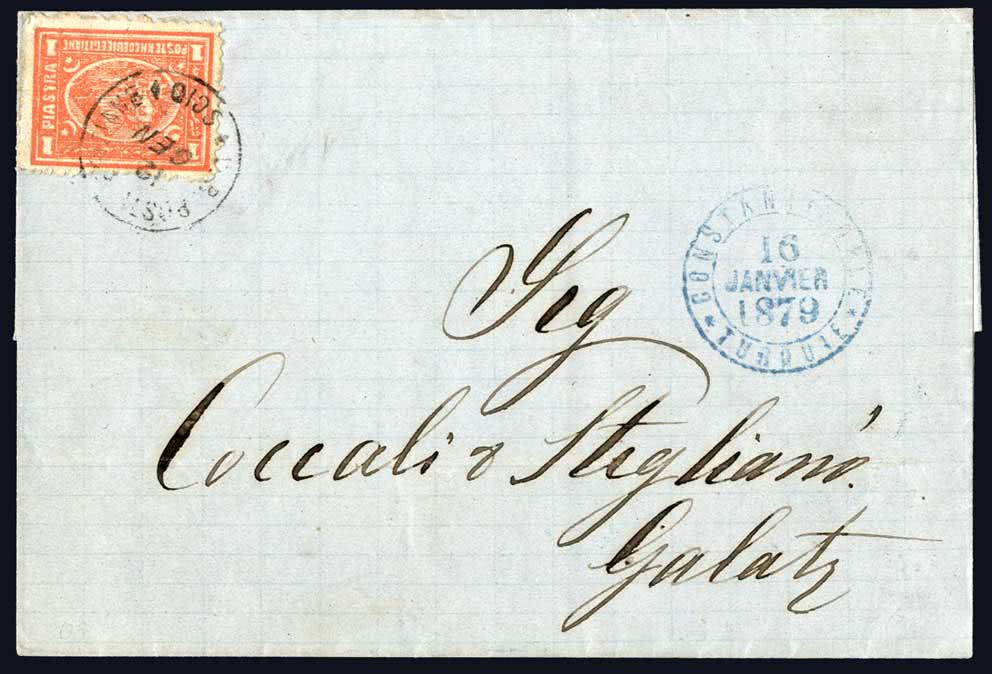 POSTE KHEDEUIE EGIZIANE
1 1
PIASTRA
1 1
SCIO
12
GEN
CONSTANTINOPLE
16
JANVIER
1879
TURQUIE
Sig
Coccali & Steglianó.
Galatz